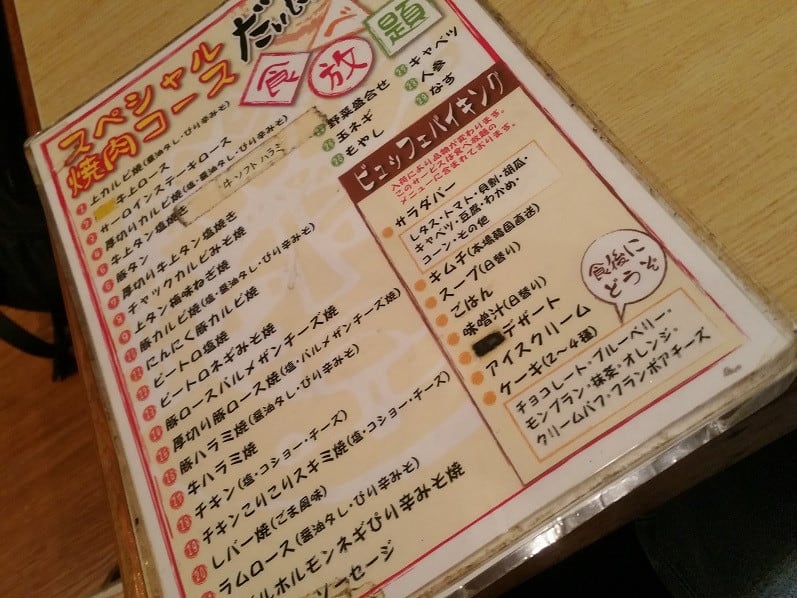 スペシャル
焼肉コース
食べ放題
上カルビ焼(醤油タレ・ぴり辛みそ)
牛上ロース
サーロインステーキロース
厚切りカルビ焼(塩・醤油タレ・ぴり辛みそ)
牛ソフトハラミ
牛上タン塩焼き
豚タン
厚切り牛上タン塩焼き
チャックカルビみそ焼
上タン塩味ねぎ焼
豚カルビ焼(塩・醤油タレ・ぴり辛みそ)
にんにく豚カルビ焼
ピートロ塩焼
ピートロネギみそ焼
豚ロースパルメザンチーズ焼
厚切り豚ロース焼(塩・パルメザンチーズ焼)
豚ハラミ焼(醤油タレ・ぴり辛みそ)
牛ハラミ焼
チキン(塩・コショー・チーズ)
チキンこりこりスキミ焼(塩・コショー・チーズ)
レバー焼(ごま風味)
ラムロース(醤油タレ・ぴり辛みそ)
ルホルモンネギぴり辛みそ焼
ソーセージ
野菜盛合せ
玉ネギ
もやし
キャベツ
人参
なす
ビュッフェバイキング
入荷により品物が変わります。
このサービスは食べ放題の
メニューに含まれております。
サラダバー
レタス・トマト・貝割・胡瓜・
キャベツ・豆腐・わかめ・
コーン・その他
キムチ(本場韓国直送)
スープ(日替り)
ごはん
味噌汁(日替り)
デザート
アイスクリーム
ケーキ(2〜4種)
食後に
どうぞ
チョコレート・ブルーベリー・
モンブラン・抹茶・オレンジ・
クリームパフ・フランボアチーズ